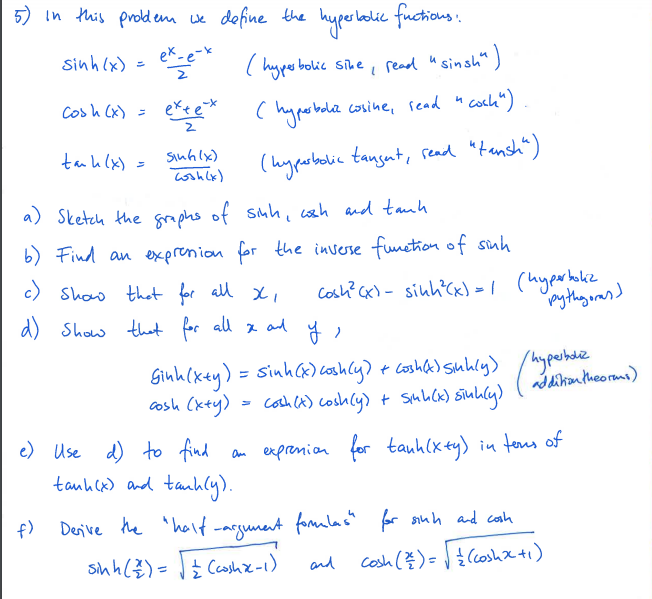 5) In this problem we define the hyperbolic fuctions:
sinh(x) = e^x-e^-x / 2 (hyperbolic sine, read "sinsh")
cosh(x) = e^x+e^-x / 2 (hyperbolic cosine, read "cosh").
tanh(x) = sinh(x) / cosh(x) (hyperbolic tangent, read "tansh")
a) Sketch the graphs of sinh, cosh and tanh
b) Find an expression for the inverse function of sinh
c) Show that for all x, cosh²(x) - sinh²(x) = 1 (hyperbolic pythagoras)
d) Show that for all x and y,
sinh(x+y) = sinh(x)cosh(y) + cosh(x)sinh(y) (hyperbolic
cosh(x+y) = cosh(x)cosh(y) + sinh(x)sinh(y) addition theorems)
e) Use d) to find an expression for tanh(x+y) in terms of
tanh(x) and tanh(y).
f) Derive the "half-argument formulas" for sinh and cosh
sinh(x/2) = √(1/2(cosh x-1)) and cosh(x/2) = √(1/2(cosh x+1))